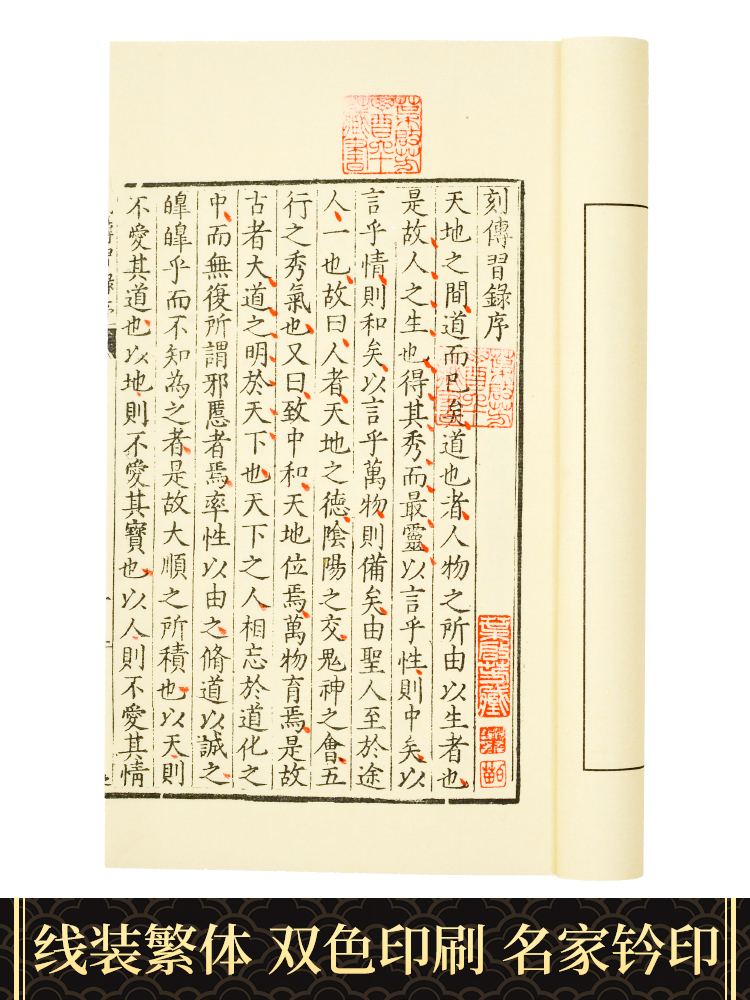 刻傳習錄序
天地之間道而已矣道也者人物之所由以生者也
是故人之生也得其秀而最靈以言乎性則中矣以
言乎情則和矣以言乎萬物則備矣由聖人至於途
人一也故曰人者天地之德陰陽之交鬼神之會五
行之秀氣也又曰致中和天地位焉萬物育焉是故
古者大道之明於天下也天下之人相忘於道化之
中而無復所謂邪慝者焉率性以由之脩道以誠之
皥皥乎而不知為之者是故大順之所積也以天則
不愛其道也以地則不愛其寶也以人則不愛其情
線装繁体 双色印刷 名家钤印